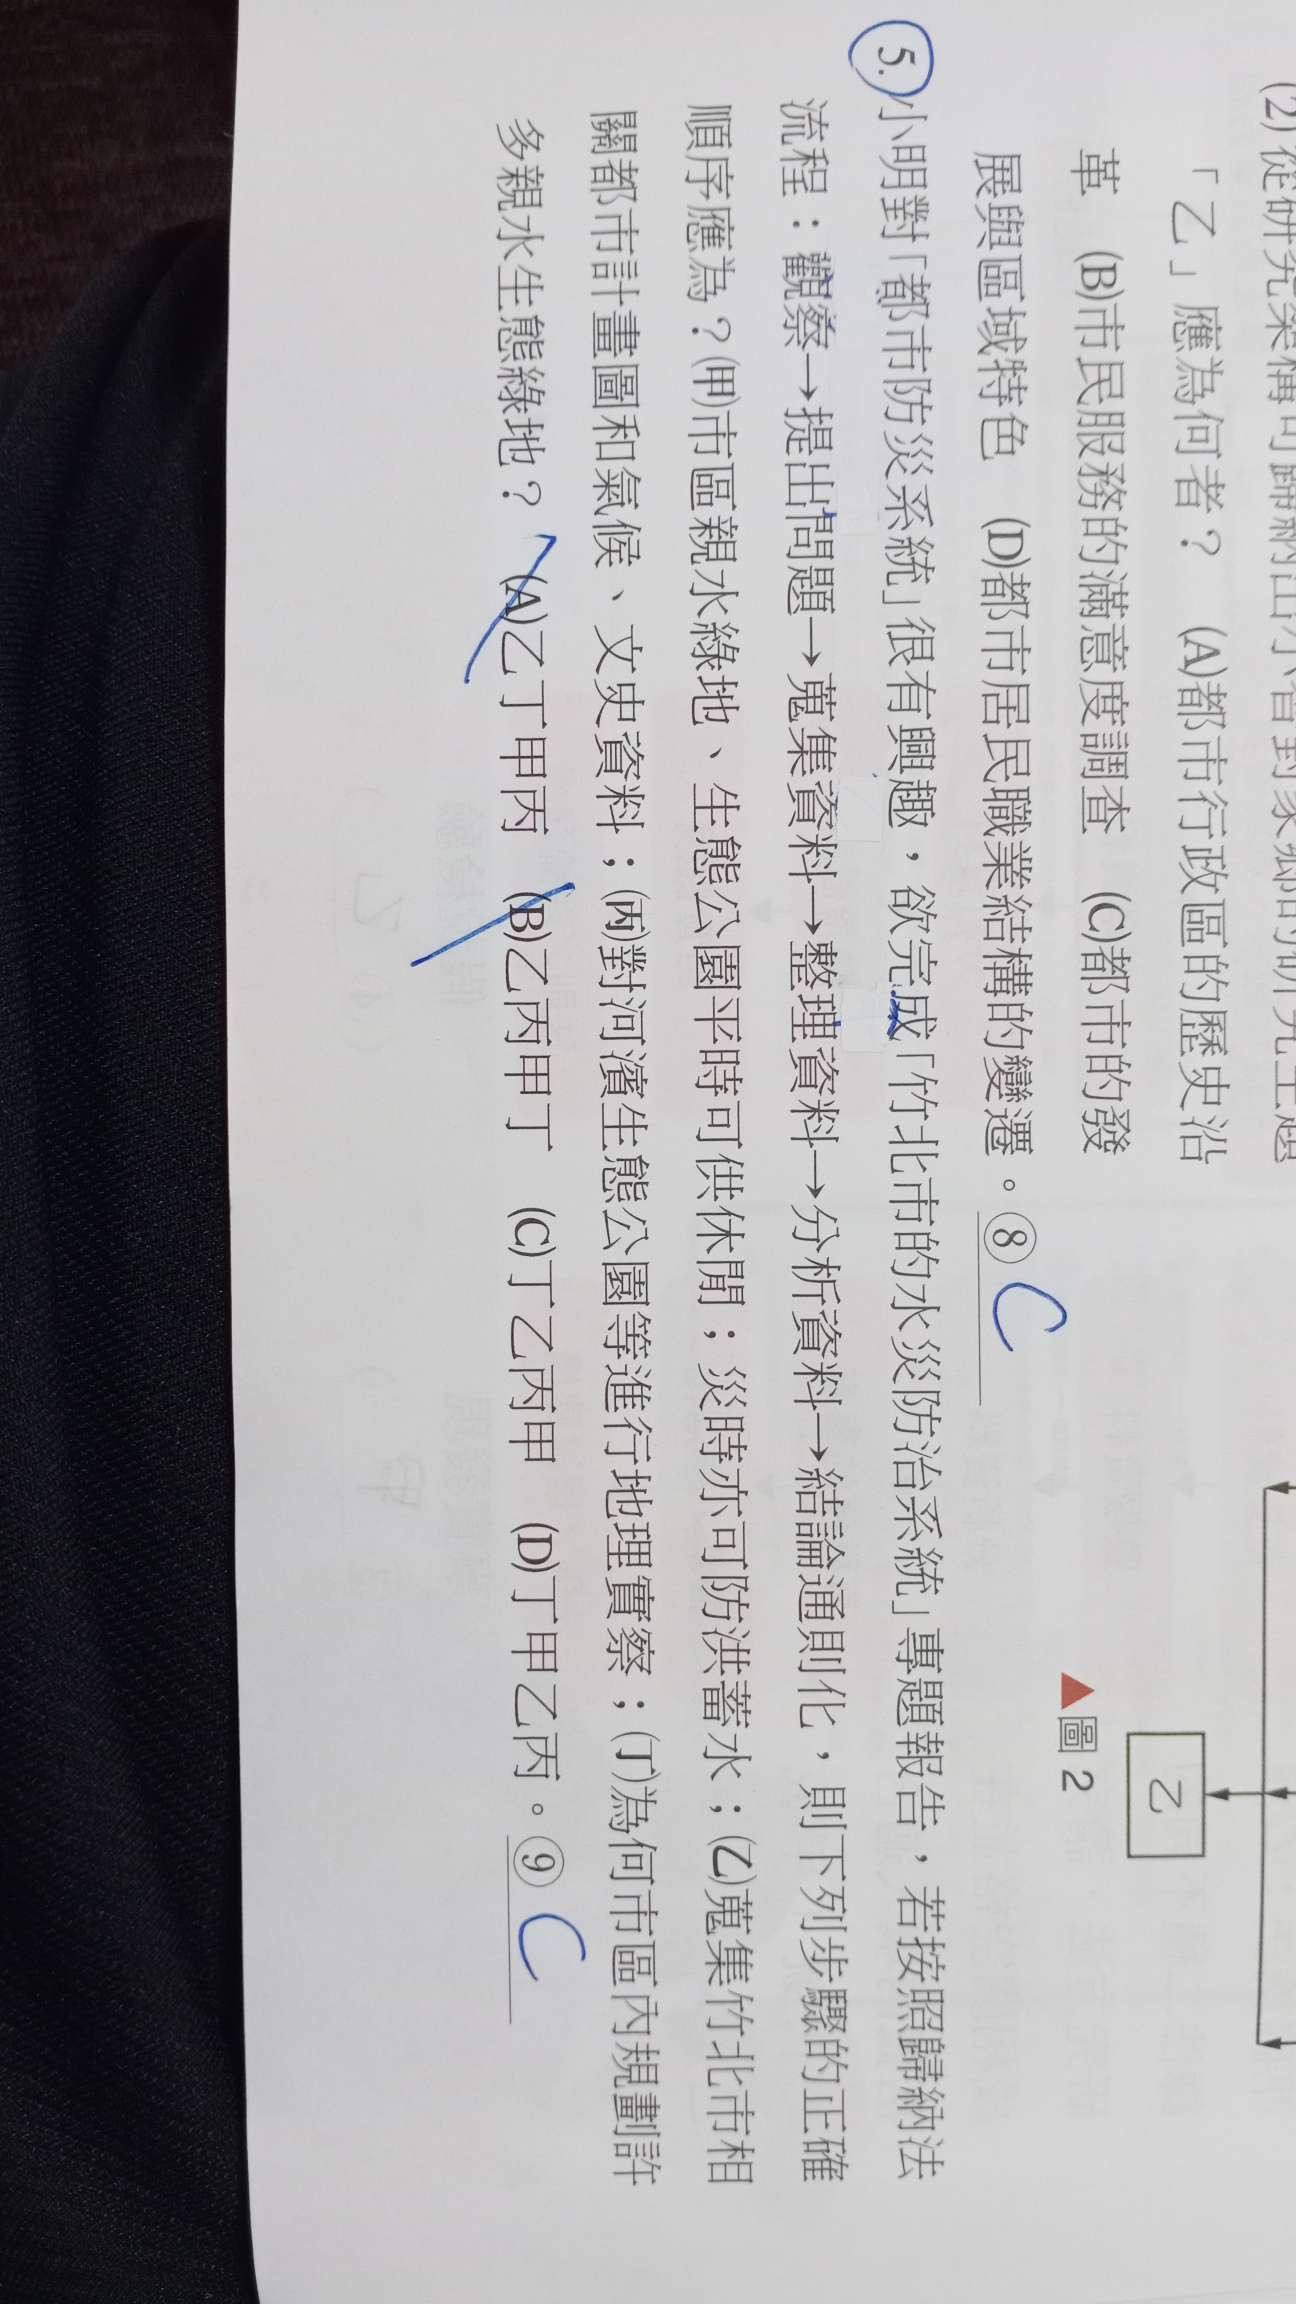 (2)從研究架構可歸納出小智對家鄉的研究主題
「乙」應為何者？ (A)都市行政區的歷史沿
革 (B)市民服務的滿意度調查 (C)都市的發
展與區域特色 (D)都市居民職業結構的變遷。⑧ C
乙
▲圖2
5.小明對「都市防災系統」很有興趣，欲完成「竹北市的水災防治系統」專題報告，若按照歸納法
流程：觀察→提出問題→蒐集資料→整理資料→分析資料→結論通則化，則下列步驟的正確
順序應為？(甲)市區親水綠地、生態公園平時可供休閒；災時亦可防洪蓄水；(乙)蒐集竹北市相
關都市計畫圖和氣候、文史資料；(丙)對河濱生態公園等進行地理實察；(丁)為何市區內規劃許
多親水生態綠地？ (A)乙丁甲丙 (B)乙丙甲丁 (C)丁乙丙甲 (D)丁甲乙丙。⑨ C